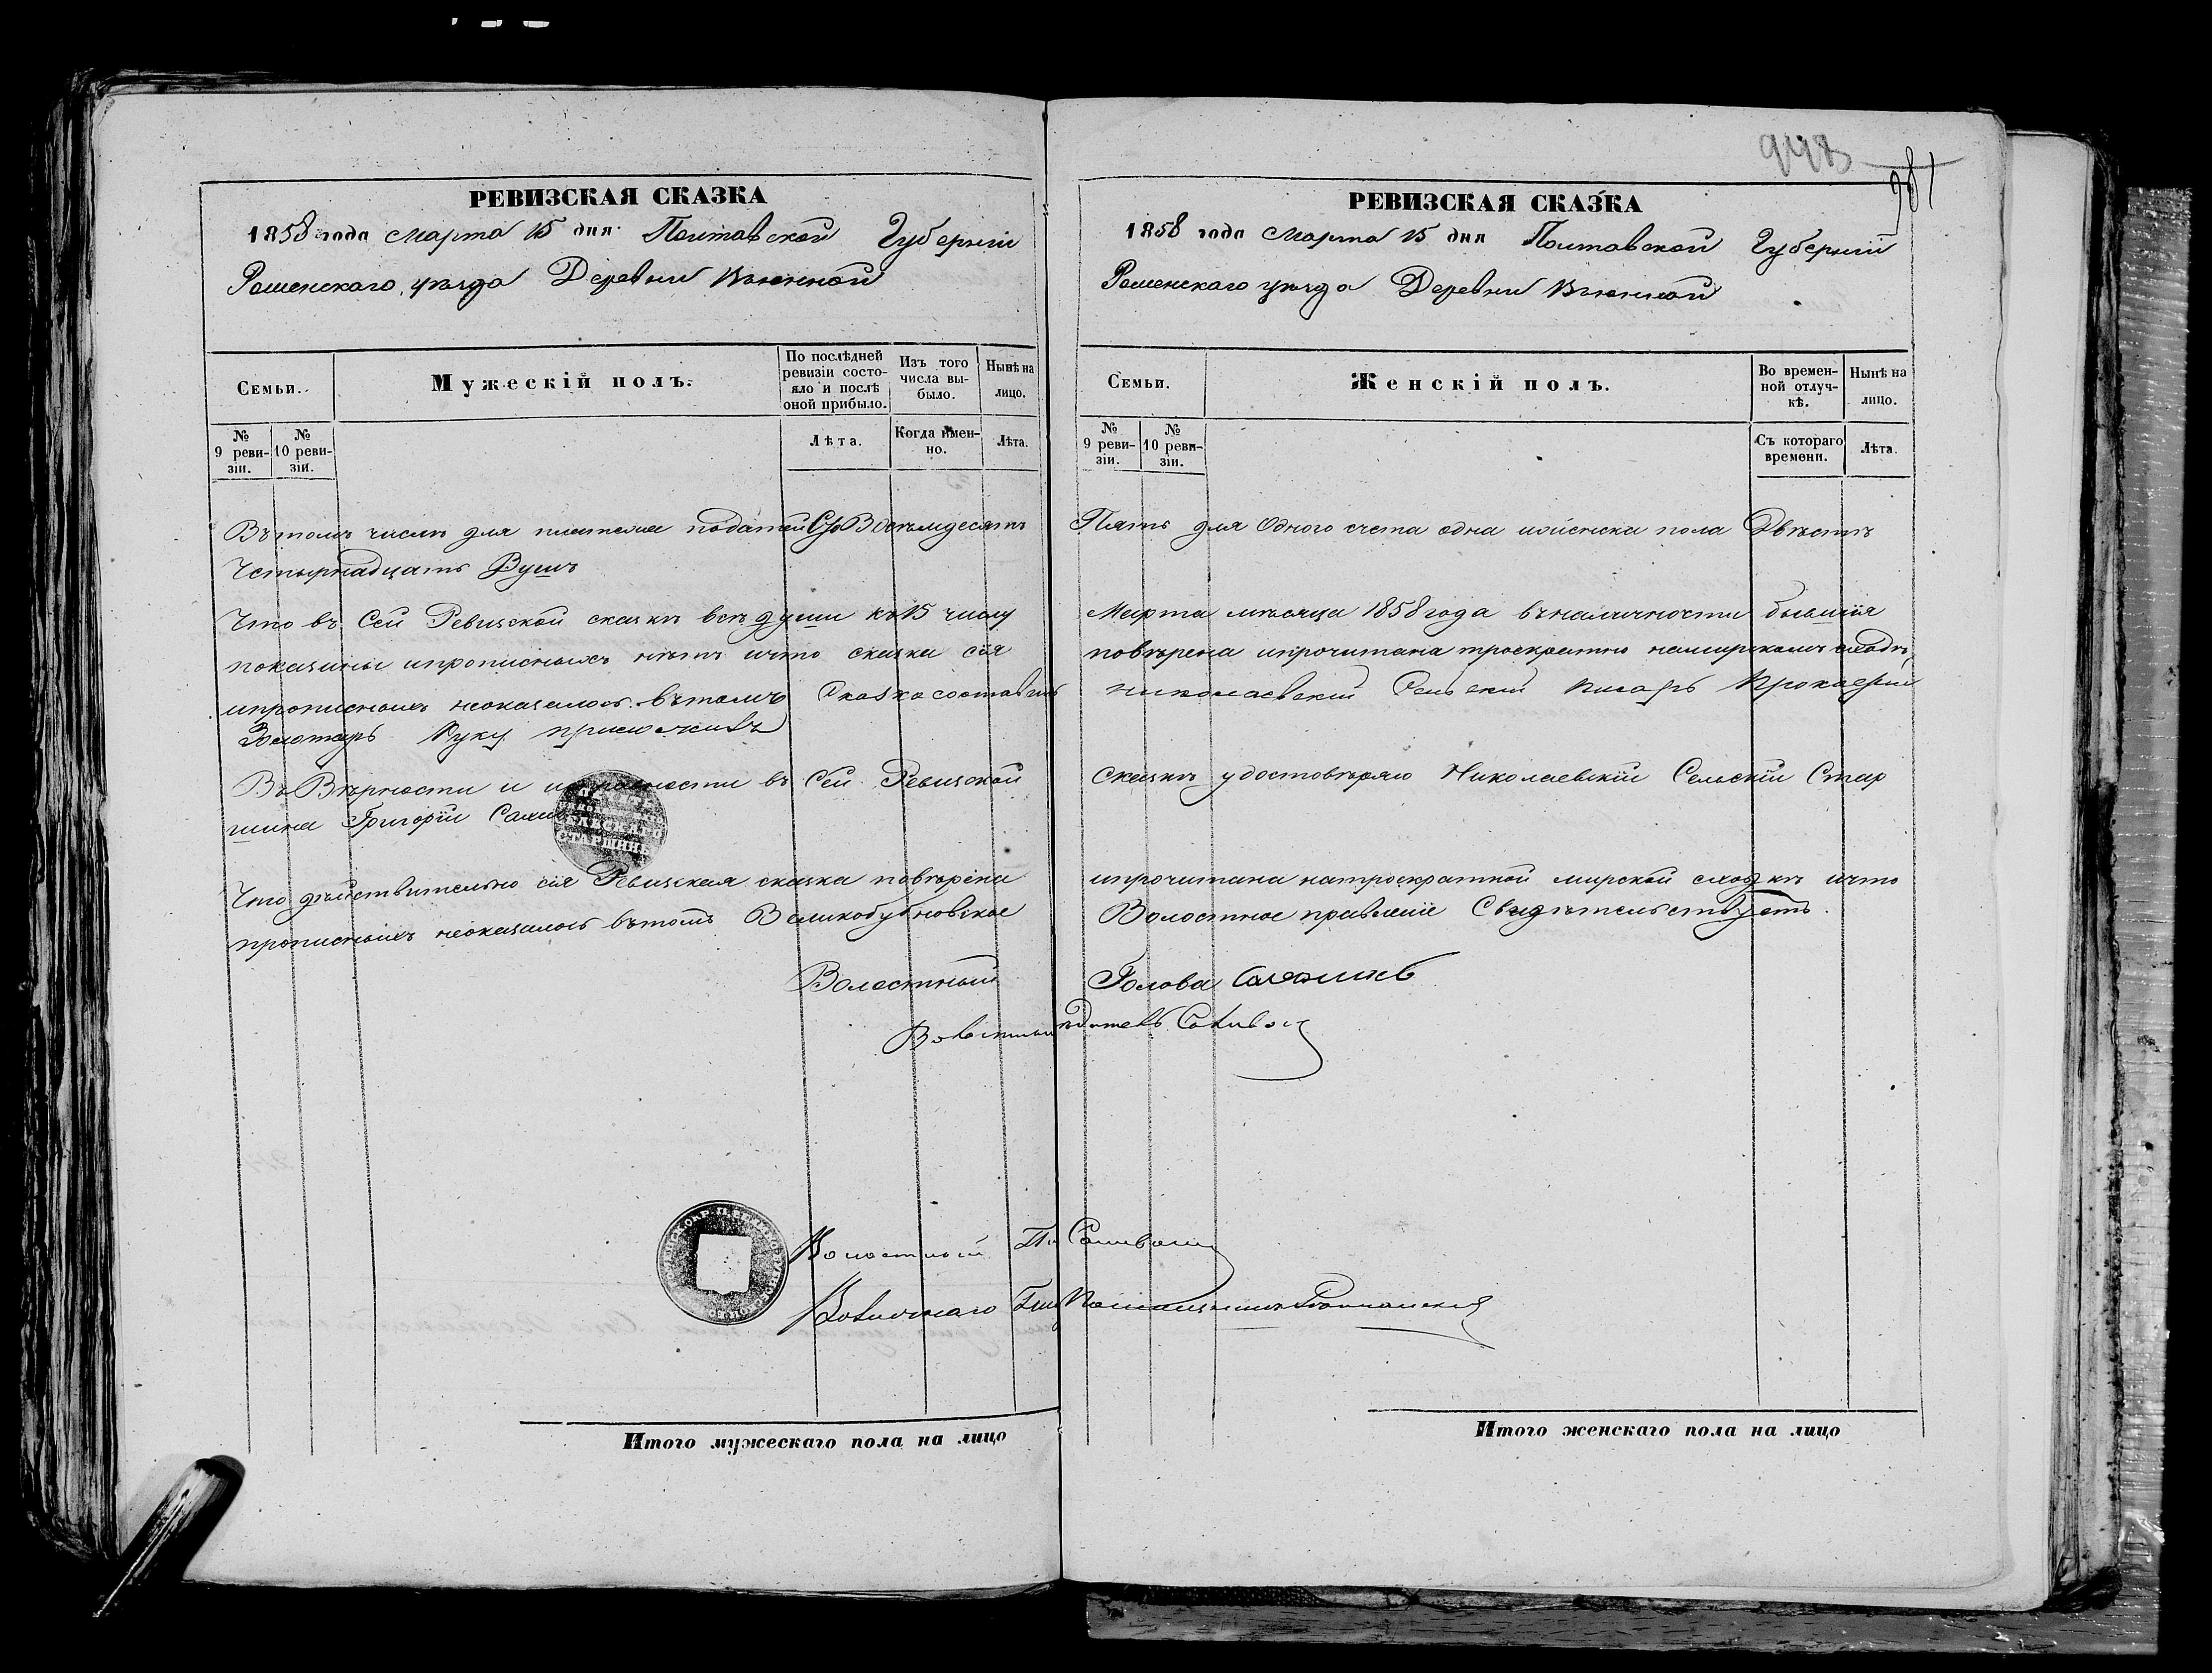 9498
981
РЕВИЗСКАЯ СКАЗКА
1858 года Марта 15 дня Полтавской Губернии
Роменскаго уѣзда Деревни Вьюнной
Семьи.
Мужескій полъ.
По послѣдней ревизіи состояло и послѣ оной прибыло.
Изъ того числа выбыло.
Нынѣ на лицо.
№ 9 ревизіи.
№ 10 ревизіи.
Лѣта.
Когда именно.
Лѣта.
Въ томъ числѣ для платежа податей Сто Восемдесятъ
Четырнадцать Душъ
Что въ Сей Ревизской сказкѣ всѣ души къ 15 числу
показаны ипрописныхъ нѣтъ ичто сказка сія
ипрописныхъ неоказалось вътомъ Сказкосоставитель
Золотарь Руку приложилъ
Въ Вѣрности и въ Сей Ревизской
шина Григорій
СТАРШИНЫ
Что дѣйствительно сія Ревизская сказка повѣрена
прописныхъ неоказалось вътомъ Великобубновское
Волостный
Волостный
Волостной
Итого мужескаго пола на лицо
РЕВИЗСКАЯ СКАЗКА
1858 года Марта 15 дня Полтавской Губерніи
Роменскаго уѣзда Деревни Вьюнной
Семьи.
Женскій полъ.
Во временной отлучкѣ.
Нынѣ на лицо.
№ 9 ревизіи.
№ 10 ревизіи.
Съ котораго времени.
Лѣта.
Пять для Одного счета одна женска пола Двѣстѣ
Марта мѣсяца 1858 года въналичности бывшія
повѣрена ипрочитана троекратно намирскомъ сходѣ,
Николаевскій Сельскій Писарь Прокофій
Сказкѣ удостовѣряю Николаевскій Сельскій Стар
ипрочитана натроекратной мирской сходкѣ ичто
Волостное правленіе Свидѣтельствуетъ.
Голова
Итого женскаго пола на лицо